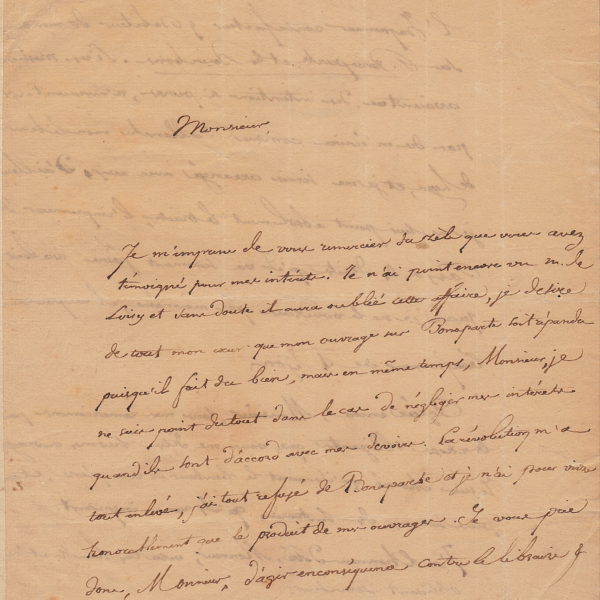 Monsieur,
Je m'impresse de vous remercier du zèle que vous avez
témoigné pour mes intérêts. Je n'ai point encore vu m. de
Loisy et sans doute il aura oublié cette affaire, je desire
de tout mon cœur que mon ouvrage sur Bonaparte soit répandu
puisqu'il fait du bien, mais en même temps, Monsieur, je
ne suis point du tout dans le cas de négliger mes intérêts
quand ils sont d'accord avec mes devoirs. La révolution m'a
tout enlevé, j'ai tout refusé de Bonaparte et je n'ai pour vivre
honorablement que le produit de mes ouvrages. Je vous prie
donc, Monsieur, d'agir en conséquence contre le libraire